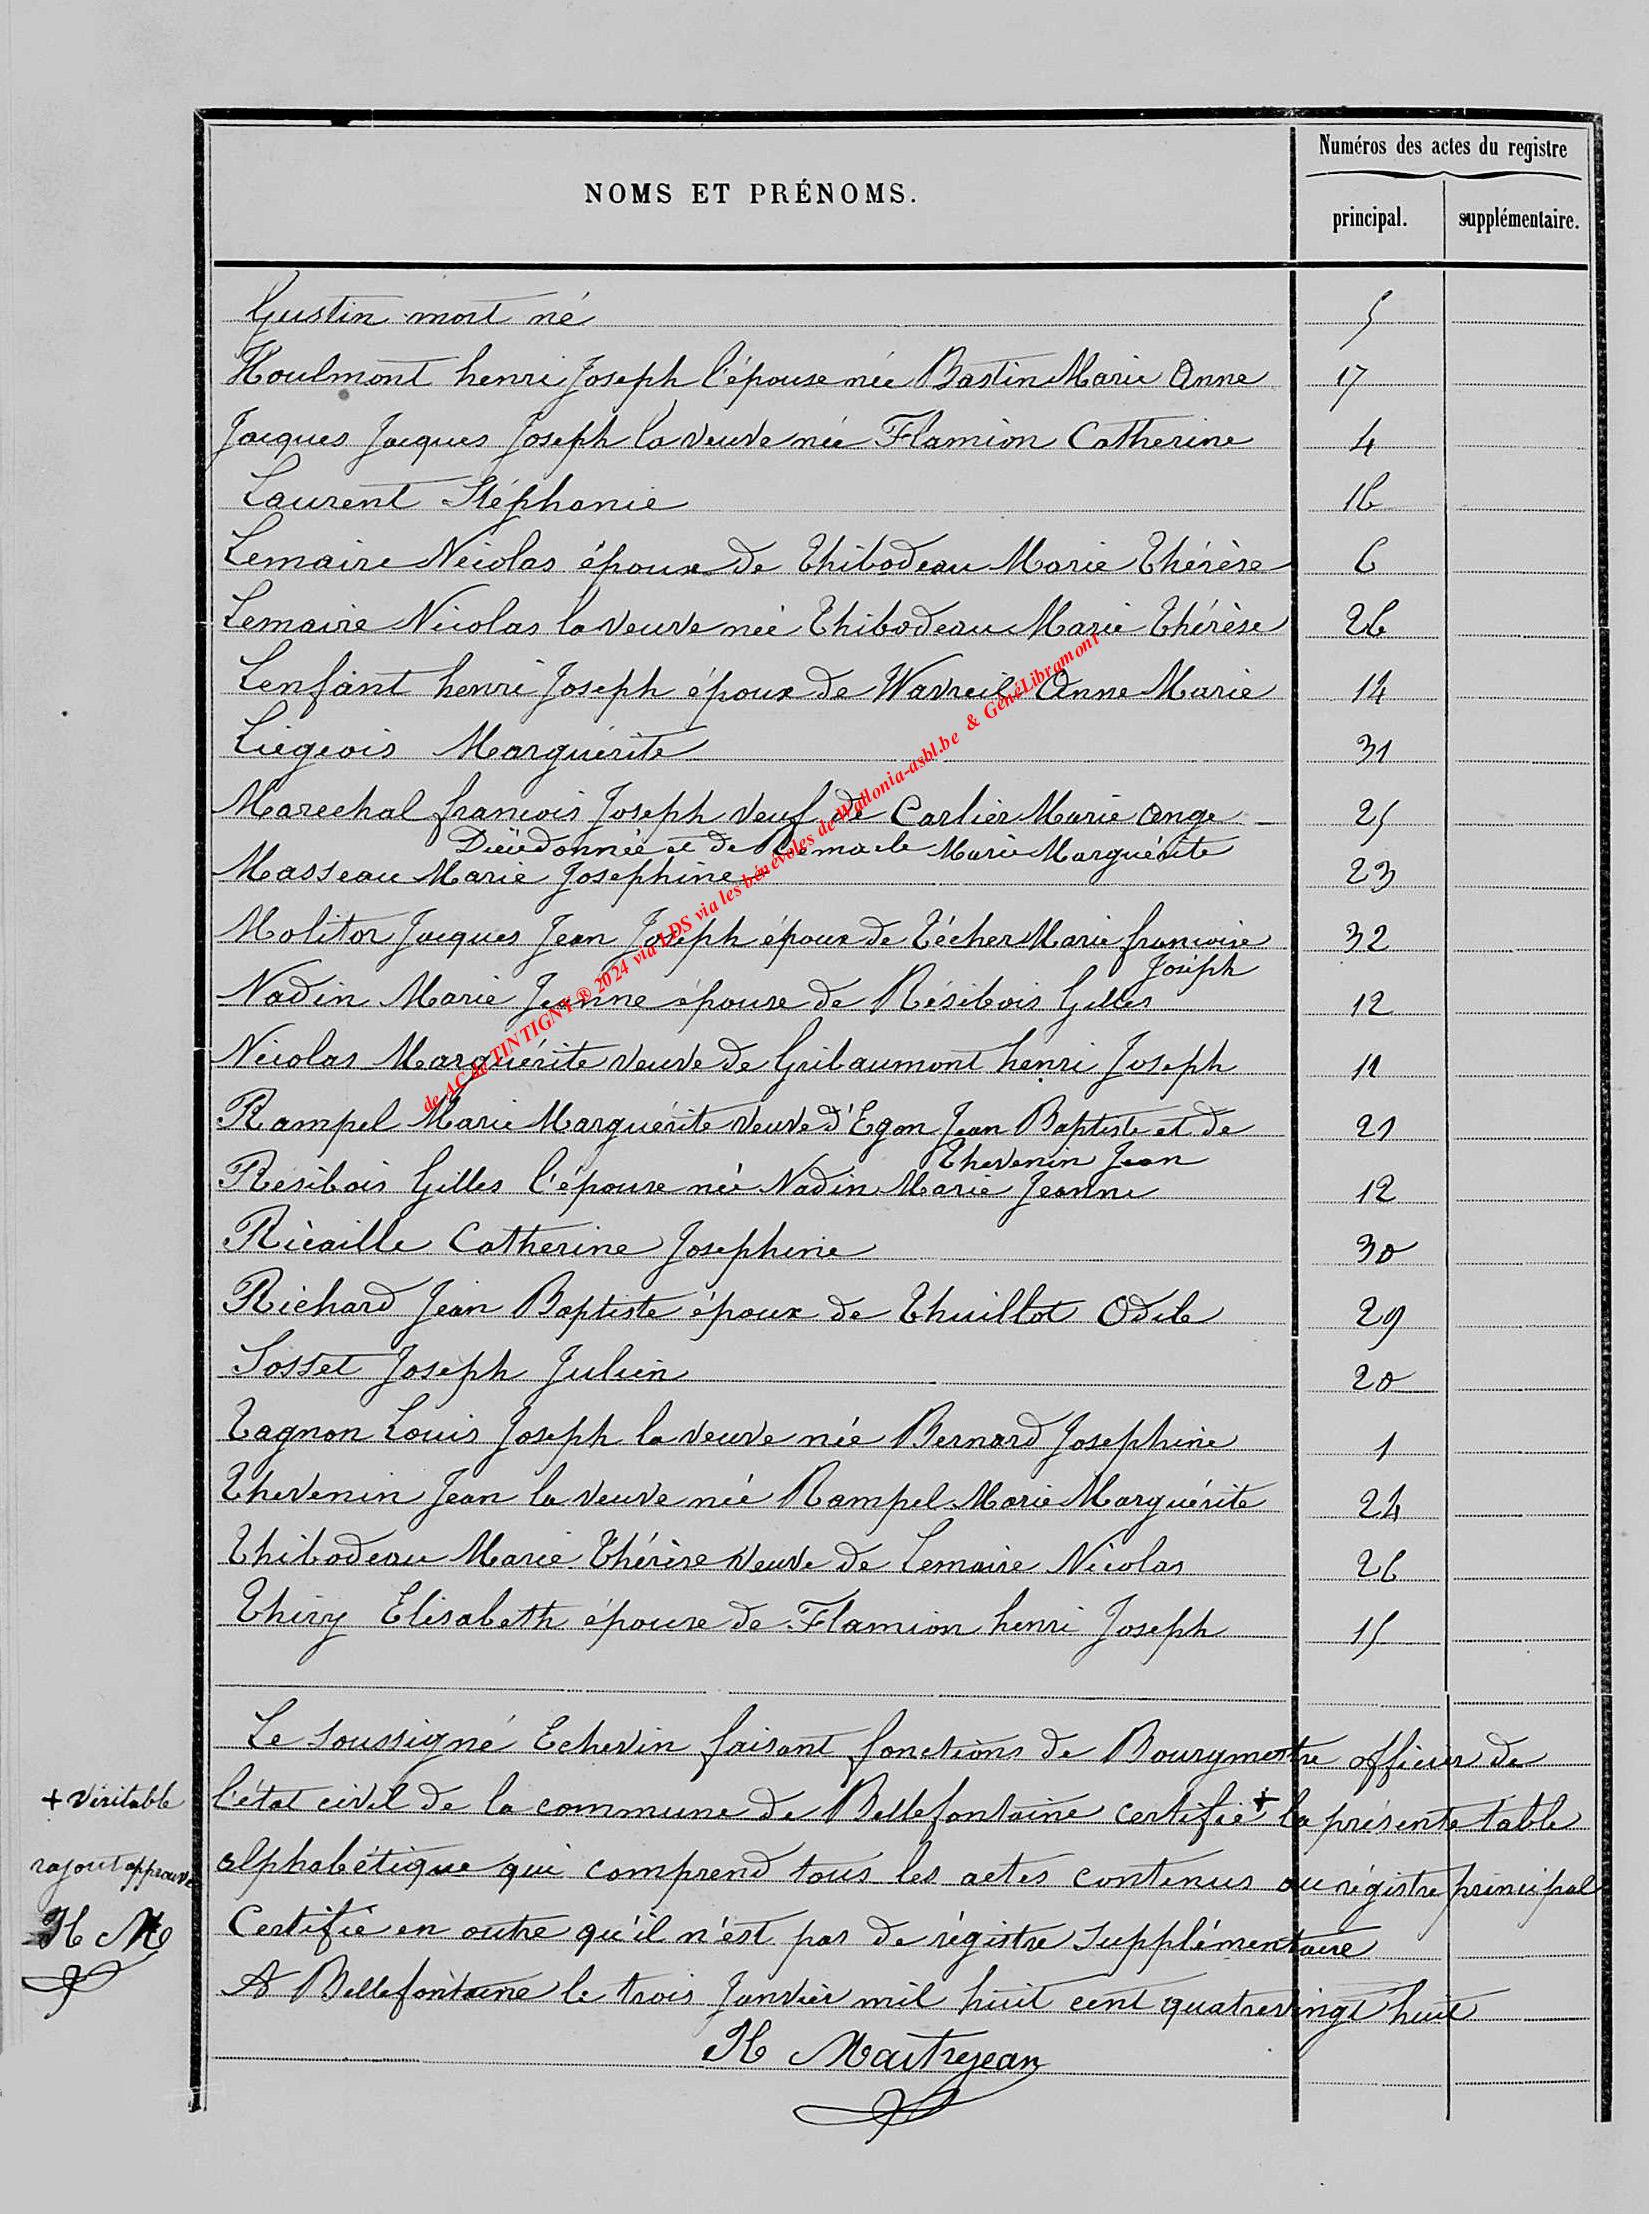 Numéros des actes du registre
NOMS ET PRÉNOMS.
principal. supplémentaire.
Gustin mort né 5
Houlmont henri Joseph l'épouse née Bastin Marie Anne 17
Jacques Jacques Joseph la veuve née Flamion Catherine 4
Laurent Stéphanie 16
Lemaire Nicolas époux de Thibodeau Marie Thérèse 6
Lemaire Nicolas la veuve née Thibodeau Marie Thérèse 26
Lenfant henri Joseph époux de Wavreil Anne Marie 14
Liégeois Marguérite 31
Marechal francois Joseph veuf de Carlier Marie Ange 25
Dieudonnée et de Remacle Marie Marguérite
Masseau Marie Josephine 23
Molitor Jacques Jean Joseph époux de Técher Marie francoise 32
Joseph
Nadin Marie Jeanne épouse de Résibois Gilles 12
Nicolas Marguérite veuve de Gribaumont henri Joseph 11
Rampel Marie Marguérite veuve d'Egon Jean Baptiste et de 21
Thevenin Jean
Resibois Gilles l'épouse née Nadin Marie Jeanne 12
Ricaille Catherine Josephine 30
Richard Jean Baptiste époux de Thuillot Odile 29
Sosset Joseph Julien 20
Tagnon Louis Joseph la veuve née Bernard Josephine 1
Thevenin Jean la veuve née Rampel Marie Marguérite 24
Thibodeau Marie Thérèse veuve de Lemaire Nicolas 26
Thiry Elisabeth épouse de Flamion henri Joseph 15
Le soussigné Echevin faisant fonctions de Bourgmestre officier de
l'état civil de la commune de Bellefontaine certifie + la présente table
+ véritable
alphabétique qui comprend tous les actes contenus au régistre principal
rajout approuvé
H M
Certifie en outre qu'il n'est pas de régistre supplémentaire
A Bellefontaine le trois Janvier mil huit cent quatrevingt huit
H Maitrejean
de AC de TINTIGNY ® 2024 via LDS via les bénévoles de Wallonia-asbl.be & GénéLibramont